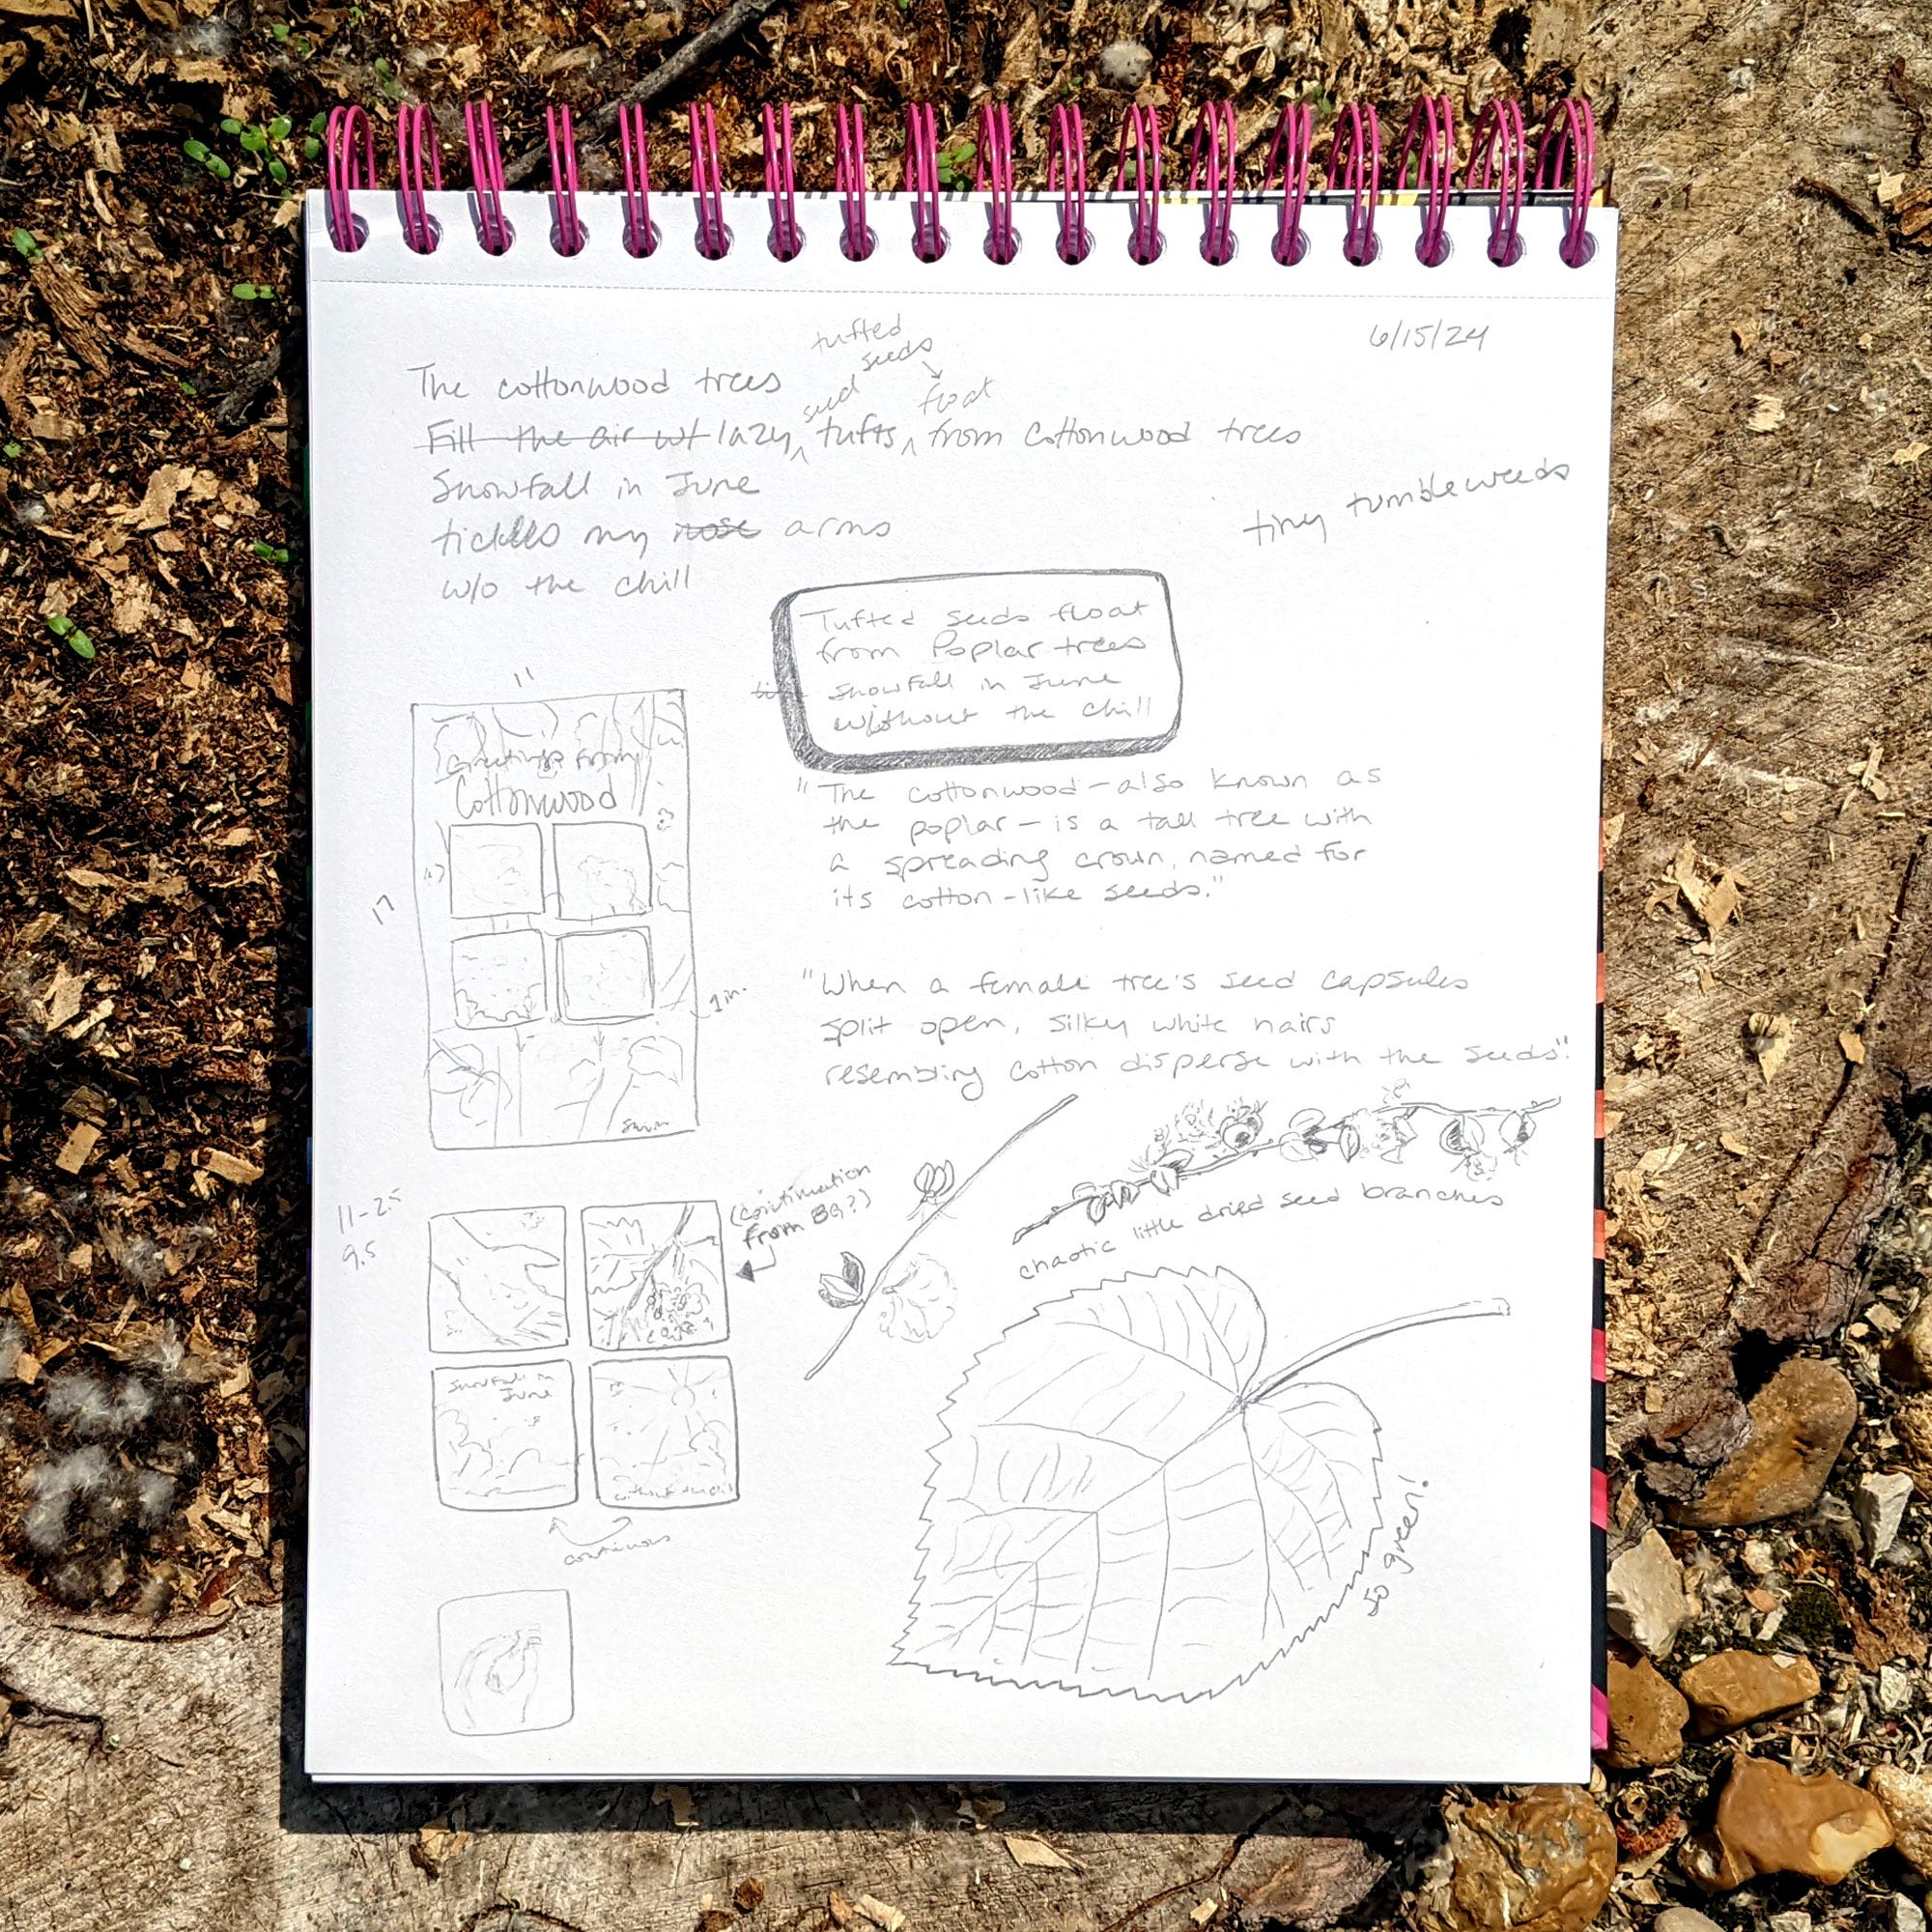 6/15/24
tufted
seeds
The cottonwood trees
seed float
Fill the air w/ lazy tufts from cottonwood trees
Snowfall in June
tickles my nose arms
w/o the chill
tiny tumbleweeds
Tufted seeds float
from Poplar trees
snowfall in June
without the chill
"The cottonwood - also known as
the poplar - is a tall tree with
a spreading crown, named for
its cotton-like seeds."
"When a female tree's seed capsules
split open, silky white hairs
resembling cotton disperse with the seeds".
11
Greetings from
Cottonwood
17
1 in.
11-2.5
9.5
(continuation
from BG?)
chaotic little dried seed branches
Snowfall in
June
without the chill
continuous
so green!